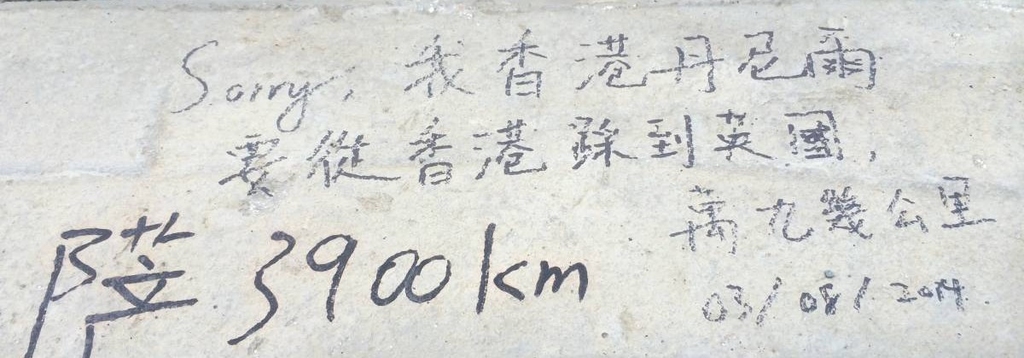 Sorry, 我香港丹尼爾
要從香港騎到英國,
萬九幾公里
03/08/2019
3900km